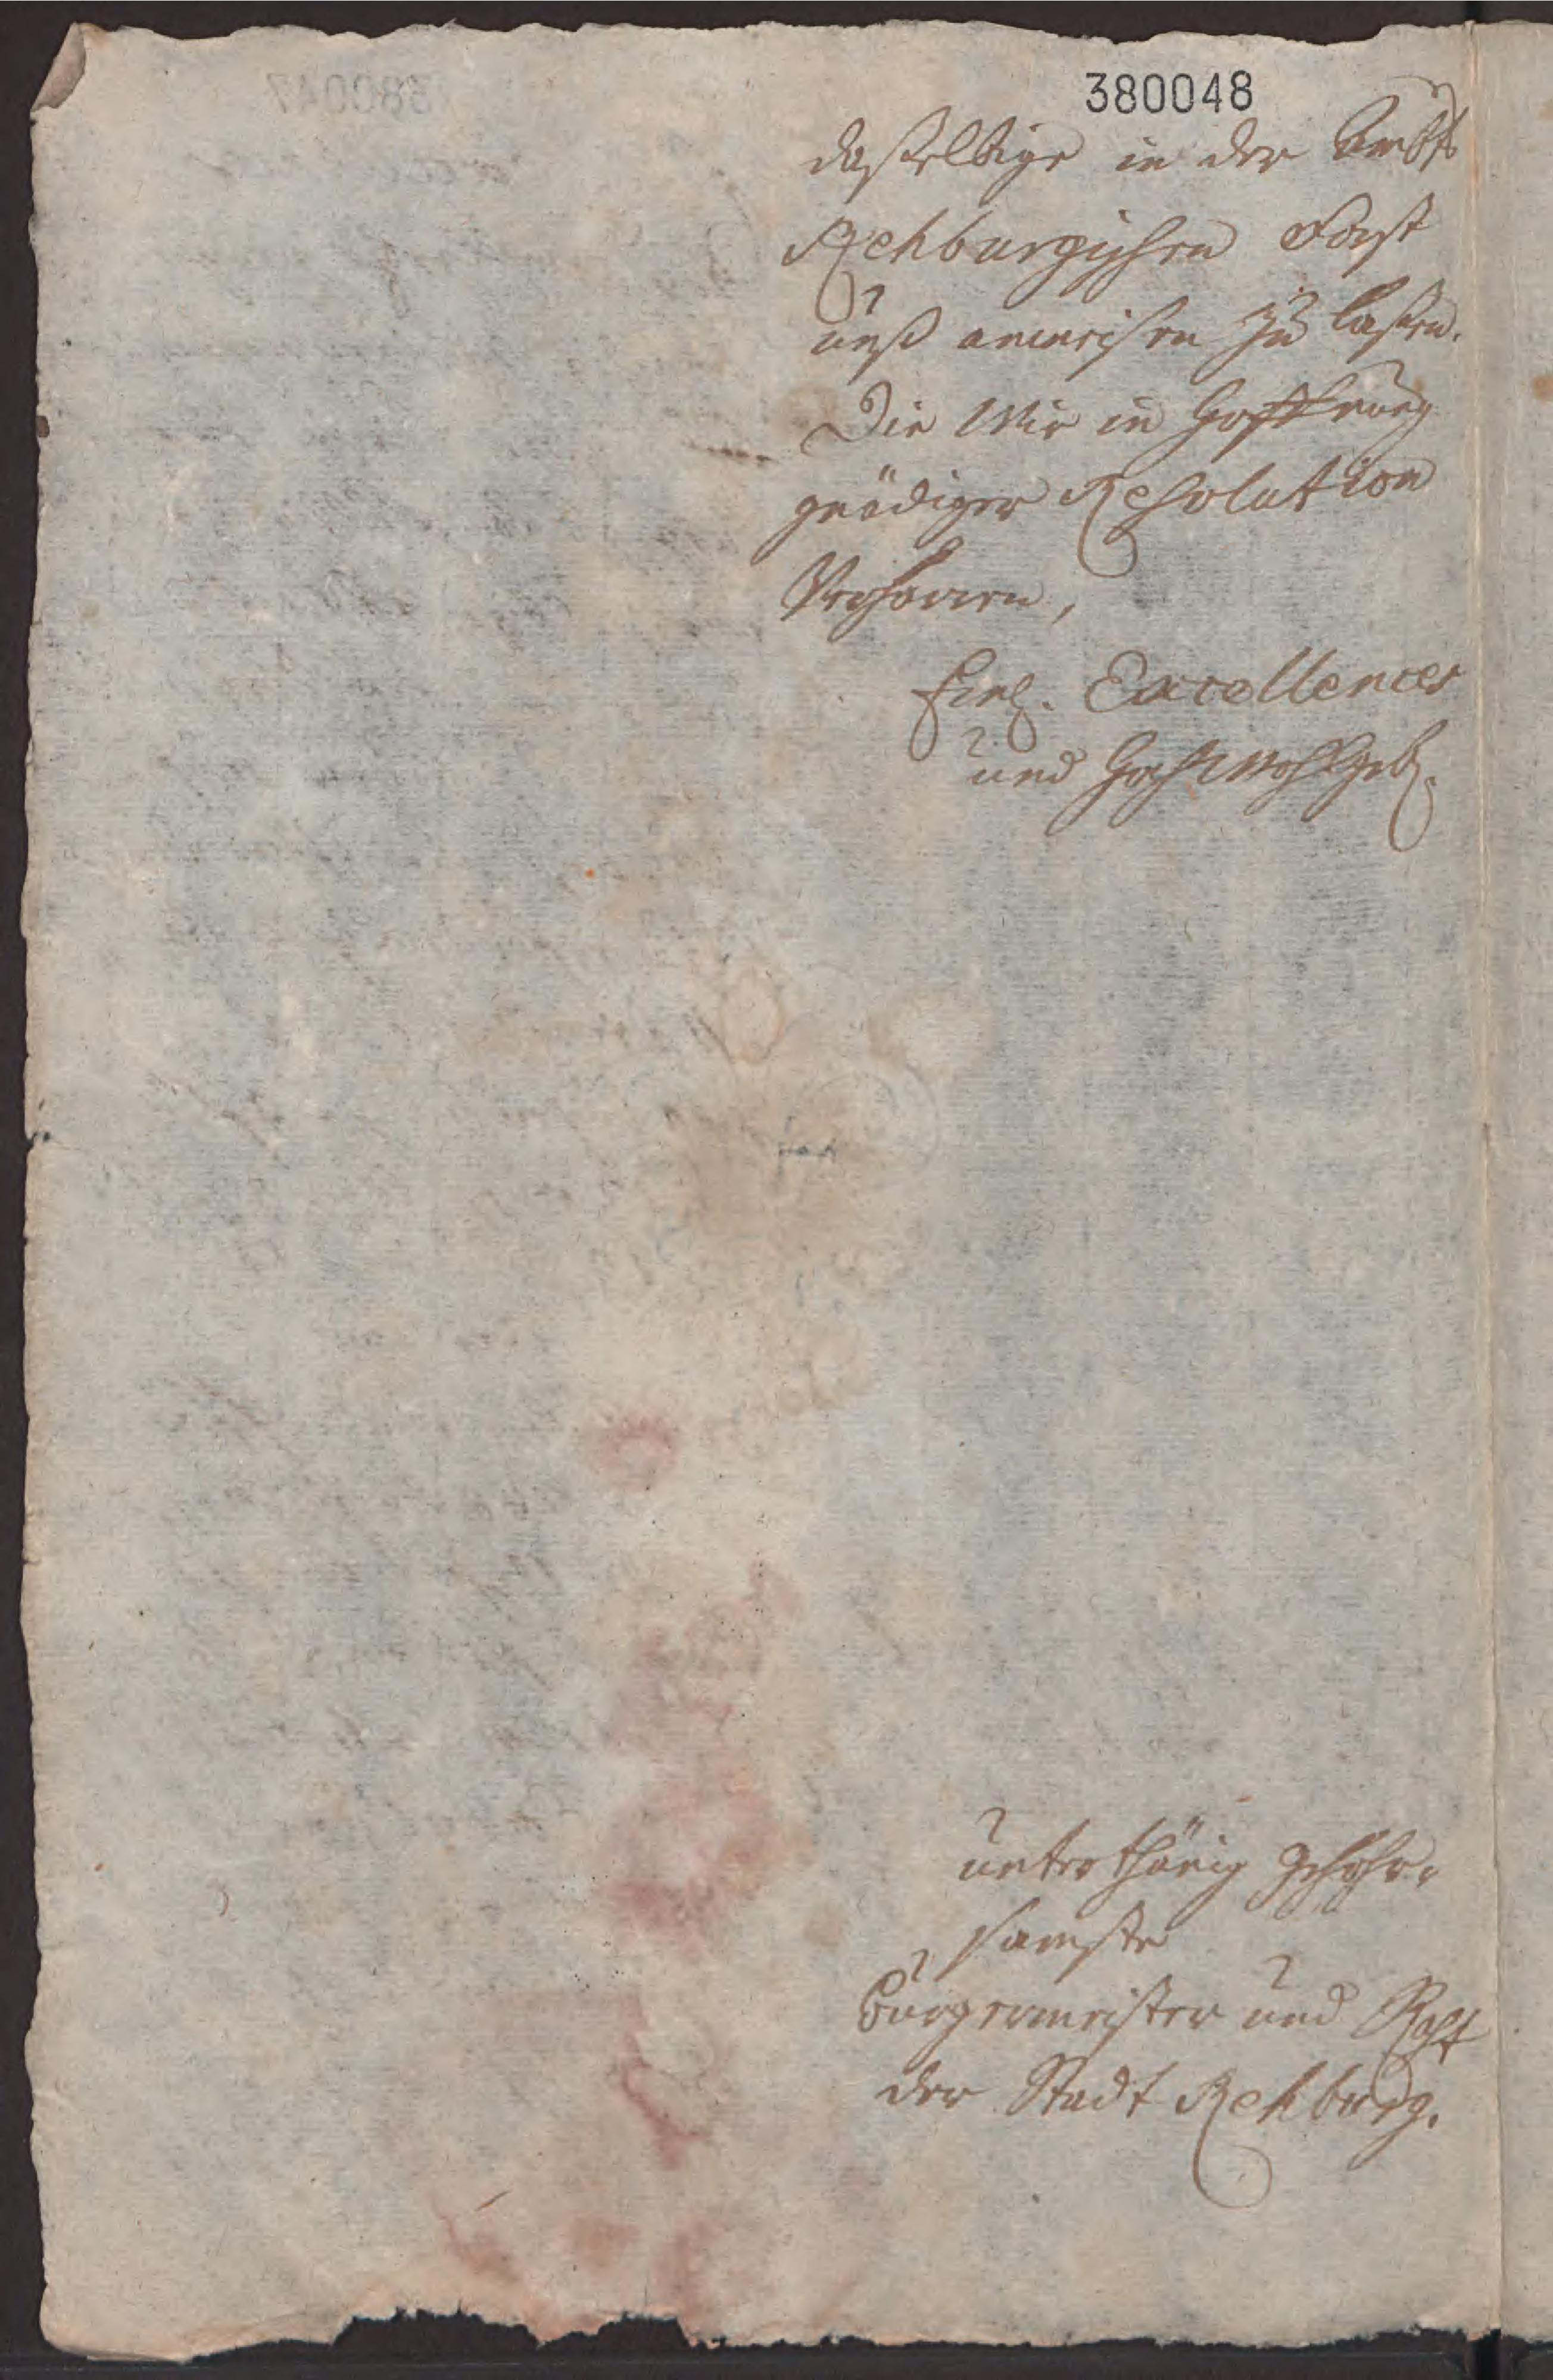 380048
daßelbige in der Ambts
Rehburgischen Forst
unß anweisen zu laßen.
Die Wir in Hoffnung
gnädiger Resolution
Verharren,
Excellences
und Hochwohlgeb.
unterthänig gehohr-
samste
Bürgermeister und Raht
der Stadt Rehburg.